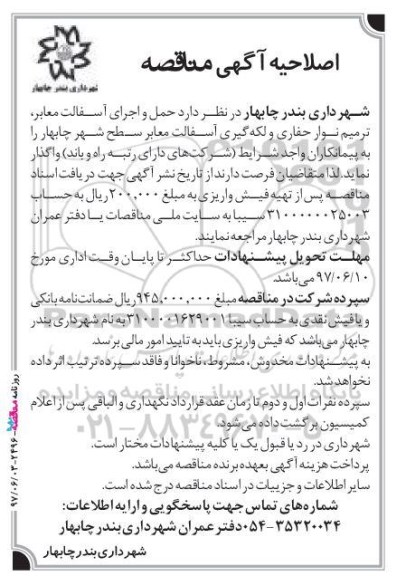 اصلاحیه آگهی مناقصه
شهرداری بندر چابهار
شهرداری بندر چابهار در نظر دارد حمل و اجرای آسفالت معابر،
ترمیم نوار حفاری و لکه گیری آسفالت معابر سطح شهر چابهار را
به پیمانکاران واجد شرایط (شرکت‌های دارای رتبه راه و باند) واگذار
نماید. لذا متقاضیان فرصت دارند از تاریخ نشر آگهی جهت دریافت اسناد
مناقصه پس از تهیه فیش واریزی به مبلغ ۲۰۰,۰۰۰ ریال به حساب
۳۱۰۰۰۰۰۰۲۵۰۰۳ سیبا به سایت ملی مناقصات یا دفتر عمران
شهرداری بندر چابهار مراجعه نمایند.
مهلت تحویل پیشنهادات حداکثر تا پایان وقت اداری مورخ
۹۷/۰۶/۱۰ می‌باشد.
سپرده شرکت در مناقصه مبلغ ۹۴۵,۰۰۰,۰۰۰ ریال ضمانت نامه بانکی
و یا فیش نقدی به حساب سیبا ۳۱۰۰۰۰۱۶۲۹۰۰۱ به نام شهرداری بندر
چابهار می‌باشد که فیش واریزی باید به تایید امور مالی برسد.
به پیشنهادات مخدوش، مشروط، ناخوانا و فاقد سپرده ترتیب اثر داده
نخواهد شد.
سپرده نفرات اول و دوم تا زمان عقد قرار داد نگهداری و الباقی پس از اعلام
کمیسیون برگشت داده می‌شود.
شهرداری در رد یا قبول یک یا کلیه پیشنهادات مختار است.
پرداخت هزینه آگهی بعهده برنده مناقصه می‌باشد.
سایر اطلاعات و جزییات در اسناد مناقصه درج شده است.
شماره‌های تماس جهت پاسخگویی و ارایه اطلاعات:
۰۵۴-۳۵۳۲۰۰۳۴ دفتر عمران شهرداری بندر چابهار
شهرداری بندر چابهار
روزنامه مناقصه مزایده ۲۴۹۶-۹۷/۰۶/۰۳
پایگاه اطلاع رسانی مناقصه و مزایده
۰۲۱-۸۸۳۴۹۶۷۰-۵